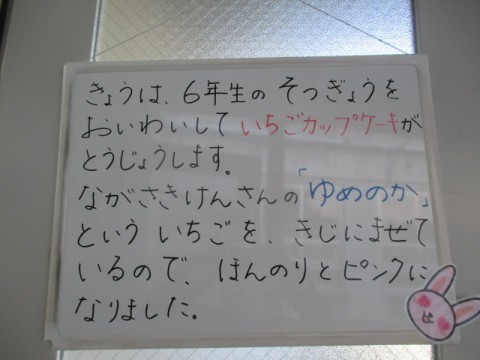 きょうは、6年生の そつぎょうを
おいわいして いちごカップケーキが
とうじょうします。
ながさきけんさんの「ゆめのか」
という いちごを、きじにまぜて
いるので、ほんのりとピンクに
なりました。